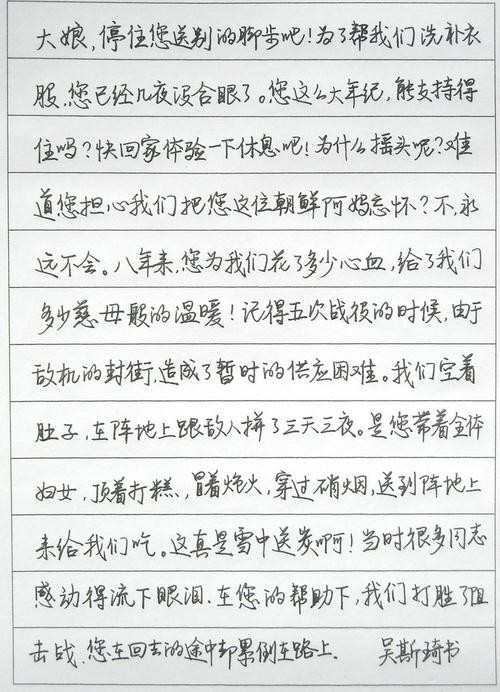 大娘,停住您送别的脚步吧!为了帮我们洗补衣
服,您已经几夜没合眼了。您这么大年纪,能支持得
住吗?快回家体验一下休息吧!为什么摇头呢?难
道您担心我们把您这位朝鲜阿妈忘怀?不,永
远不会。八年来,您为我们花了多少心血,给了我们
多少慈母般的温暖!记得五次战役的时候,由于
敌机的封街,造成了暂时的供应困难。我们空着
肚子,在阵地上跟敌人拼了三天三夜。是您带着全体
妇女,顶着打糕,冒着炮火,穿过硝烟,送到阵地上
来给我们吃。这真是雪中送炭啊!当时很多同志
感动得流下眼泪.在您的帮助下,我们打胜了阻
击战.您在回去的途中却累倒在路上. 吴斯琦书